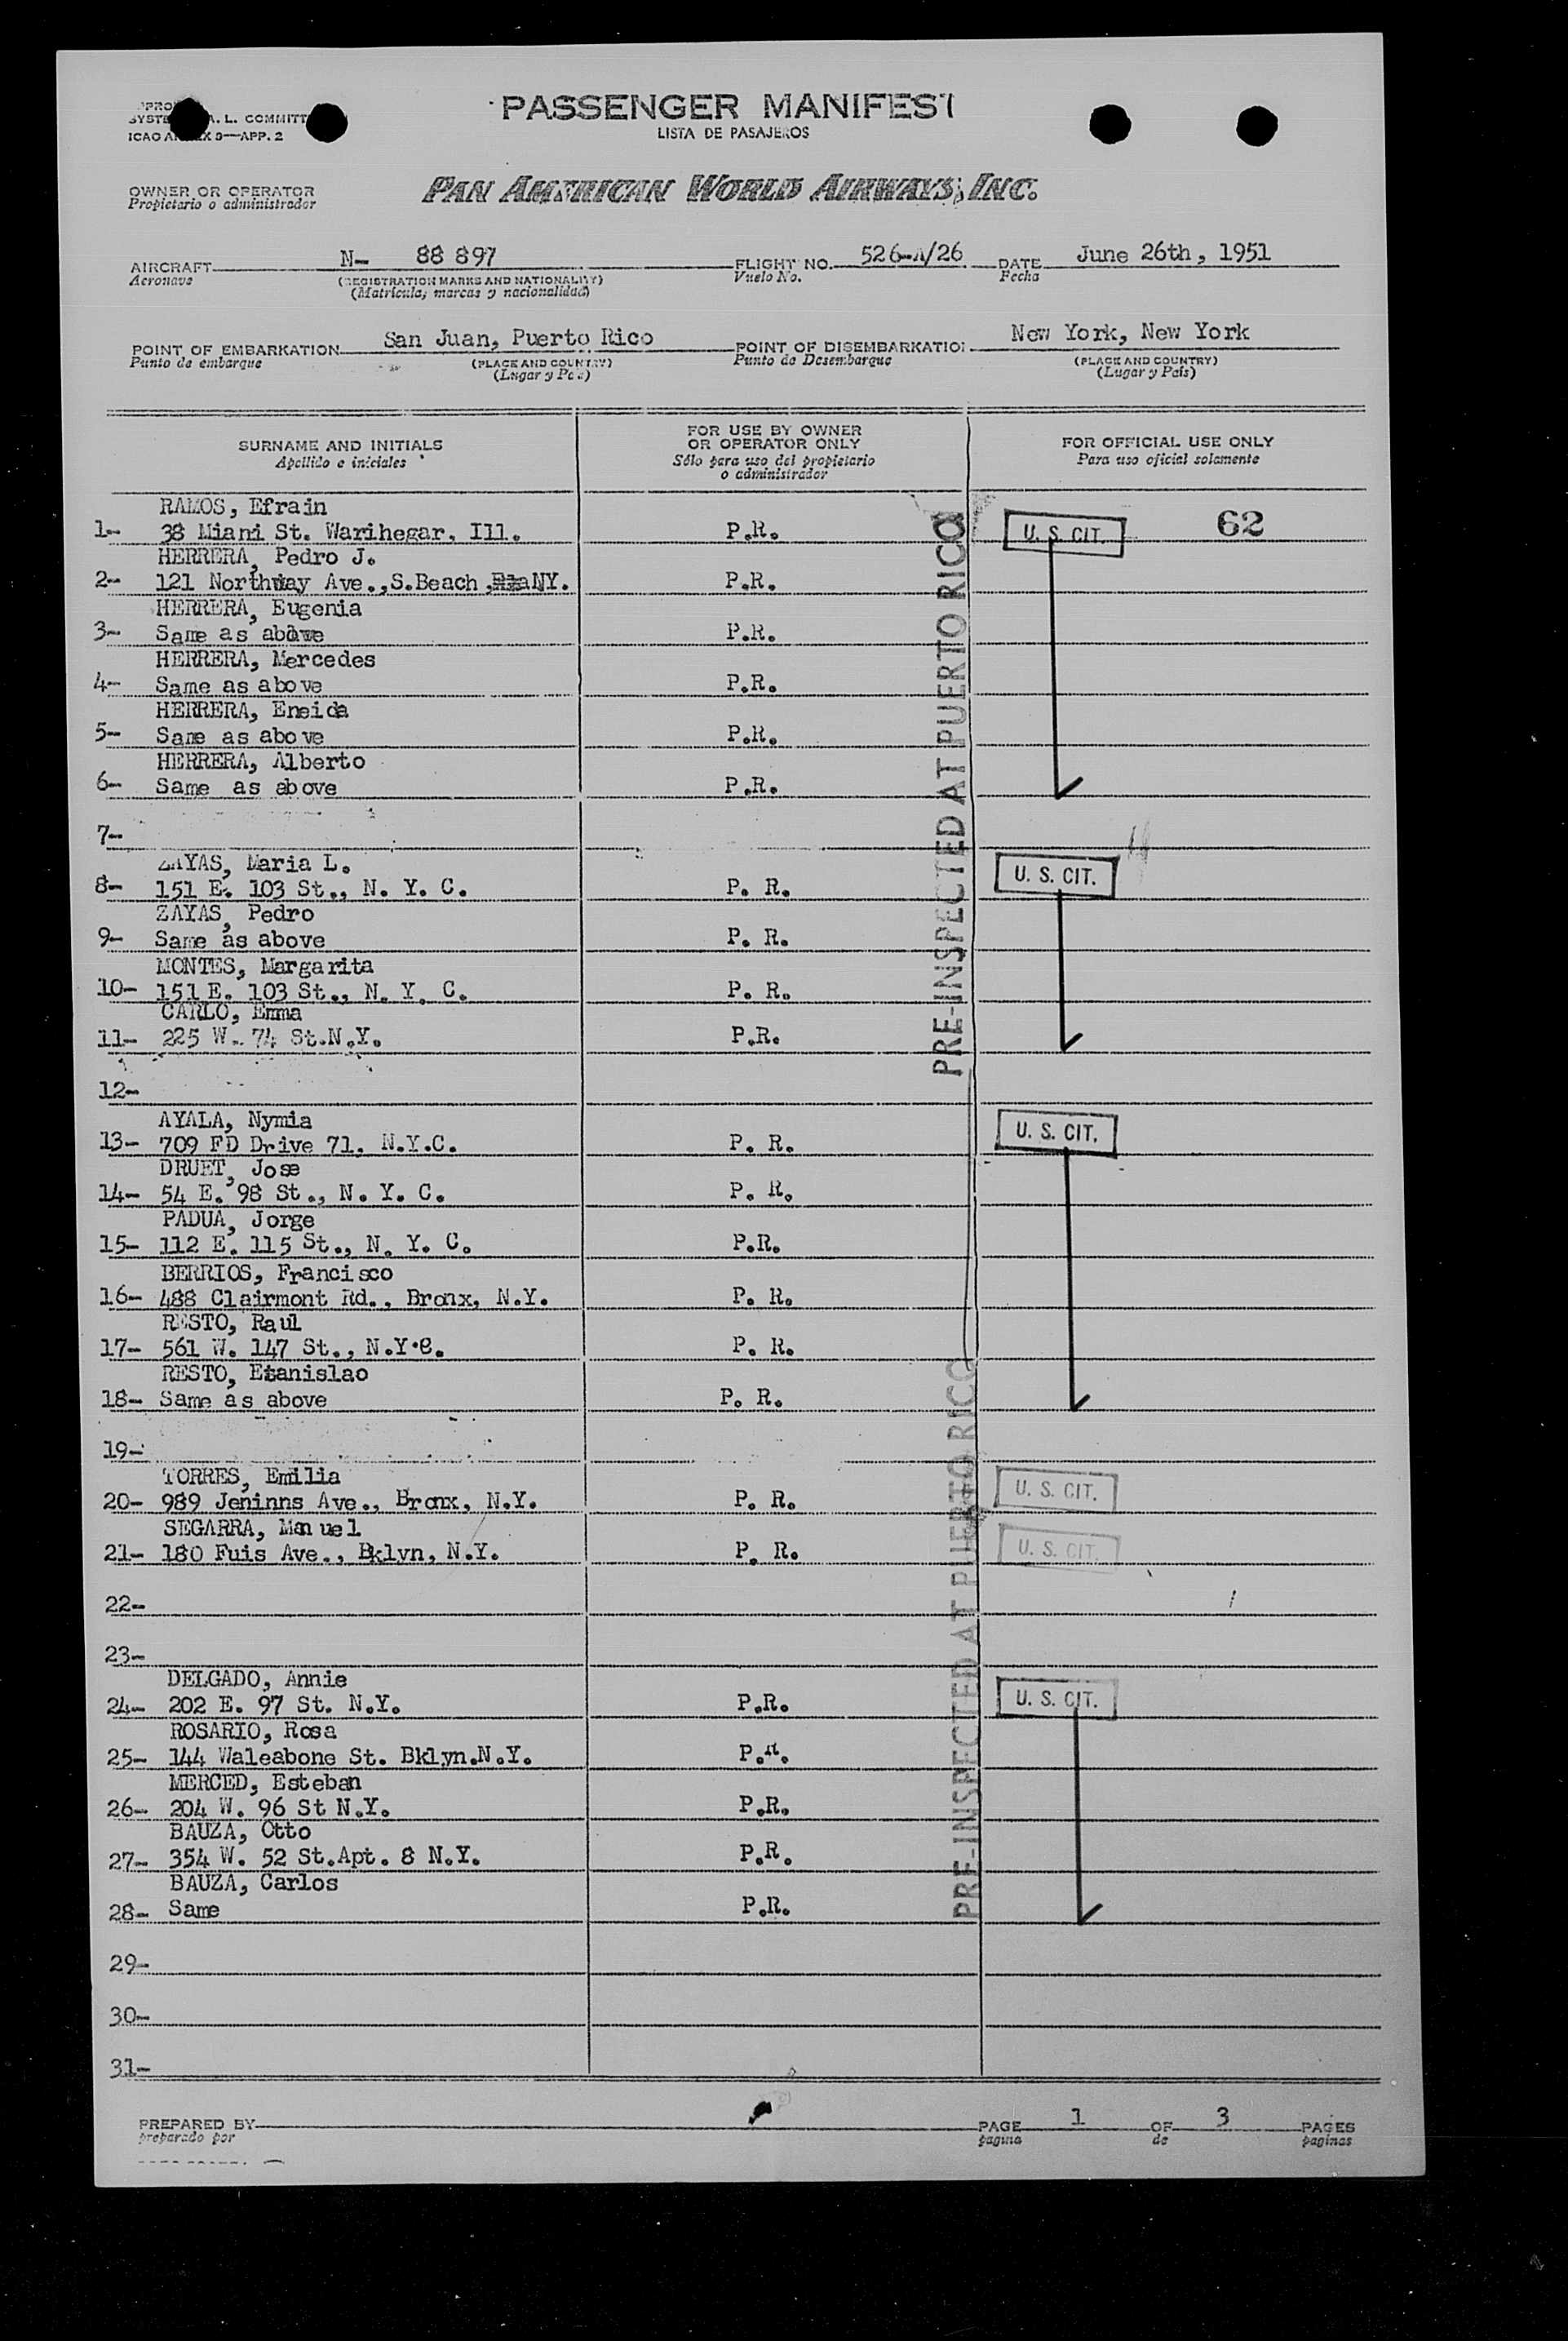 PASSENGER MANIFEST
LISTA DE PASAJEROS
A. L. COMMITT
ICAO 9—APP. 2
OWNER OR OPERATOR
Propietario o administrador
PAN AMERICAN WORLD AIRWAYS, INC.
AIRCRAFT N- 88 897 FLIGHT NO. 526-A/26 DATE June 26th, 1951
Aeronave (REGISTRATION MARKS AND NATIONALITY) Vuelo No. Fecha
(Matrícula, marcas y nacionalidad)
POINT OF EMBARKATION San Juan, Puerto Rico POINT OF DISEMBARKATION New York, New York
Punto de embarque (PLACE AND COUNTRY) Punto de Desembarque (PLACE AND COUNTRY)
(Lugar y País) (Lugar y País)
SURNAME AND INITIALS FOR USE BY OWNER OR OPERATOR ONLY FOR OFFICIAL USE ONLY
Apellido e iniciales Sólo para uso del propietario o administrador Para uso oficial solamente
RAMOS, Efrain
1- 38 Miani St. Warihegar, Ill. P.R. U. S. CIT. 62
HERRERA, Pedro J.
2- 121 Northway Ave.,S.Beach, NY. P.R.
HERRERA, Eugenia
3- Same as above P.R.
HERRERA, Mercedes
4- Same as above P.R.
HERRERA, Eneida
5- Same as above P.R.
HERRERA, Alberto
6- Same as above P.R.
7-
ZAYAS, Maria L.
8- 151 E. 103 St., N. Y. C. P. R. U. S. CIT.
ZAYAS, Pedro
9- Same as above P. R.
MONTES, Margarita
10- 151 E. 103 St., N. Y. C. P. R.
CARLO, Emma
11- 225 W. 74 St.N.Y. P.R.
12-
AYALA, Nymia
13- 709 FD Drive 71, N.Y.C. P. R. U. S. CIT.
DRUET, Jose
14- 54 E. 98 St., N. Y. C. P. R.
PADUA, Jorge
15- 112 E. 115 St., N. Y. C. P.R.
BERRIOS, Francisco
16- 488 Clairmont Rd., Bronx, N.Y. P. R.
RESTO, Raul
17- 561 W. 147 St., N.Y.C. P. R.
RESTO, Estanislao
18- Same as above P. R.
19-
TORRES, Emilia
20- 989 Jeninns Ave., Bronx, N.Y. P. R. U. S. CIT.
SEGARRA, Manuel
21- 180 Fuis Ave., Bklyn, N.Y. P. R. U. S. CIT.
22-
23-
DELGADO, Annie
24- 202 E. 97 St. N.Y. P.R. U. S. CIT.
ROSARIO, Rosa
25- 144 Waleabone St. Bklyn.N.Y. P.R.
MERCED, Esteban
26- 204 W. 96 St N.Y. P.R.
BAUZA, Otto
27- 354 W. 52 St.Apt. 8 N.Y. P.R.
BAUZA, Carlos
28- Same P.R.
29-
30-
31-
PRE-INSPECTED AT PUERTO RICO
PRE-INSPECTED AT PUERTO RICO
PREPARED BY PAGE 1 OF 3 PAGES
preparado por pagina de paginas